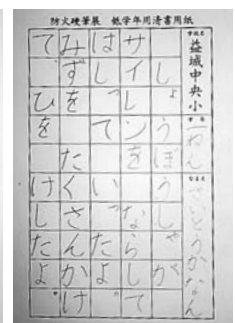 防火硬筆展 低学年用清書用紙
学校名 益城中央小 学年 一ねん なまえ さいとうかなん
しょうぼうしゃが
サイレンをならして
はしっていったよ。
みずを たくさんかけ
て ひを けしたよ。